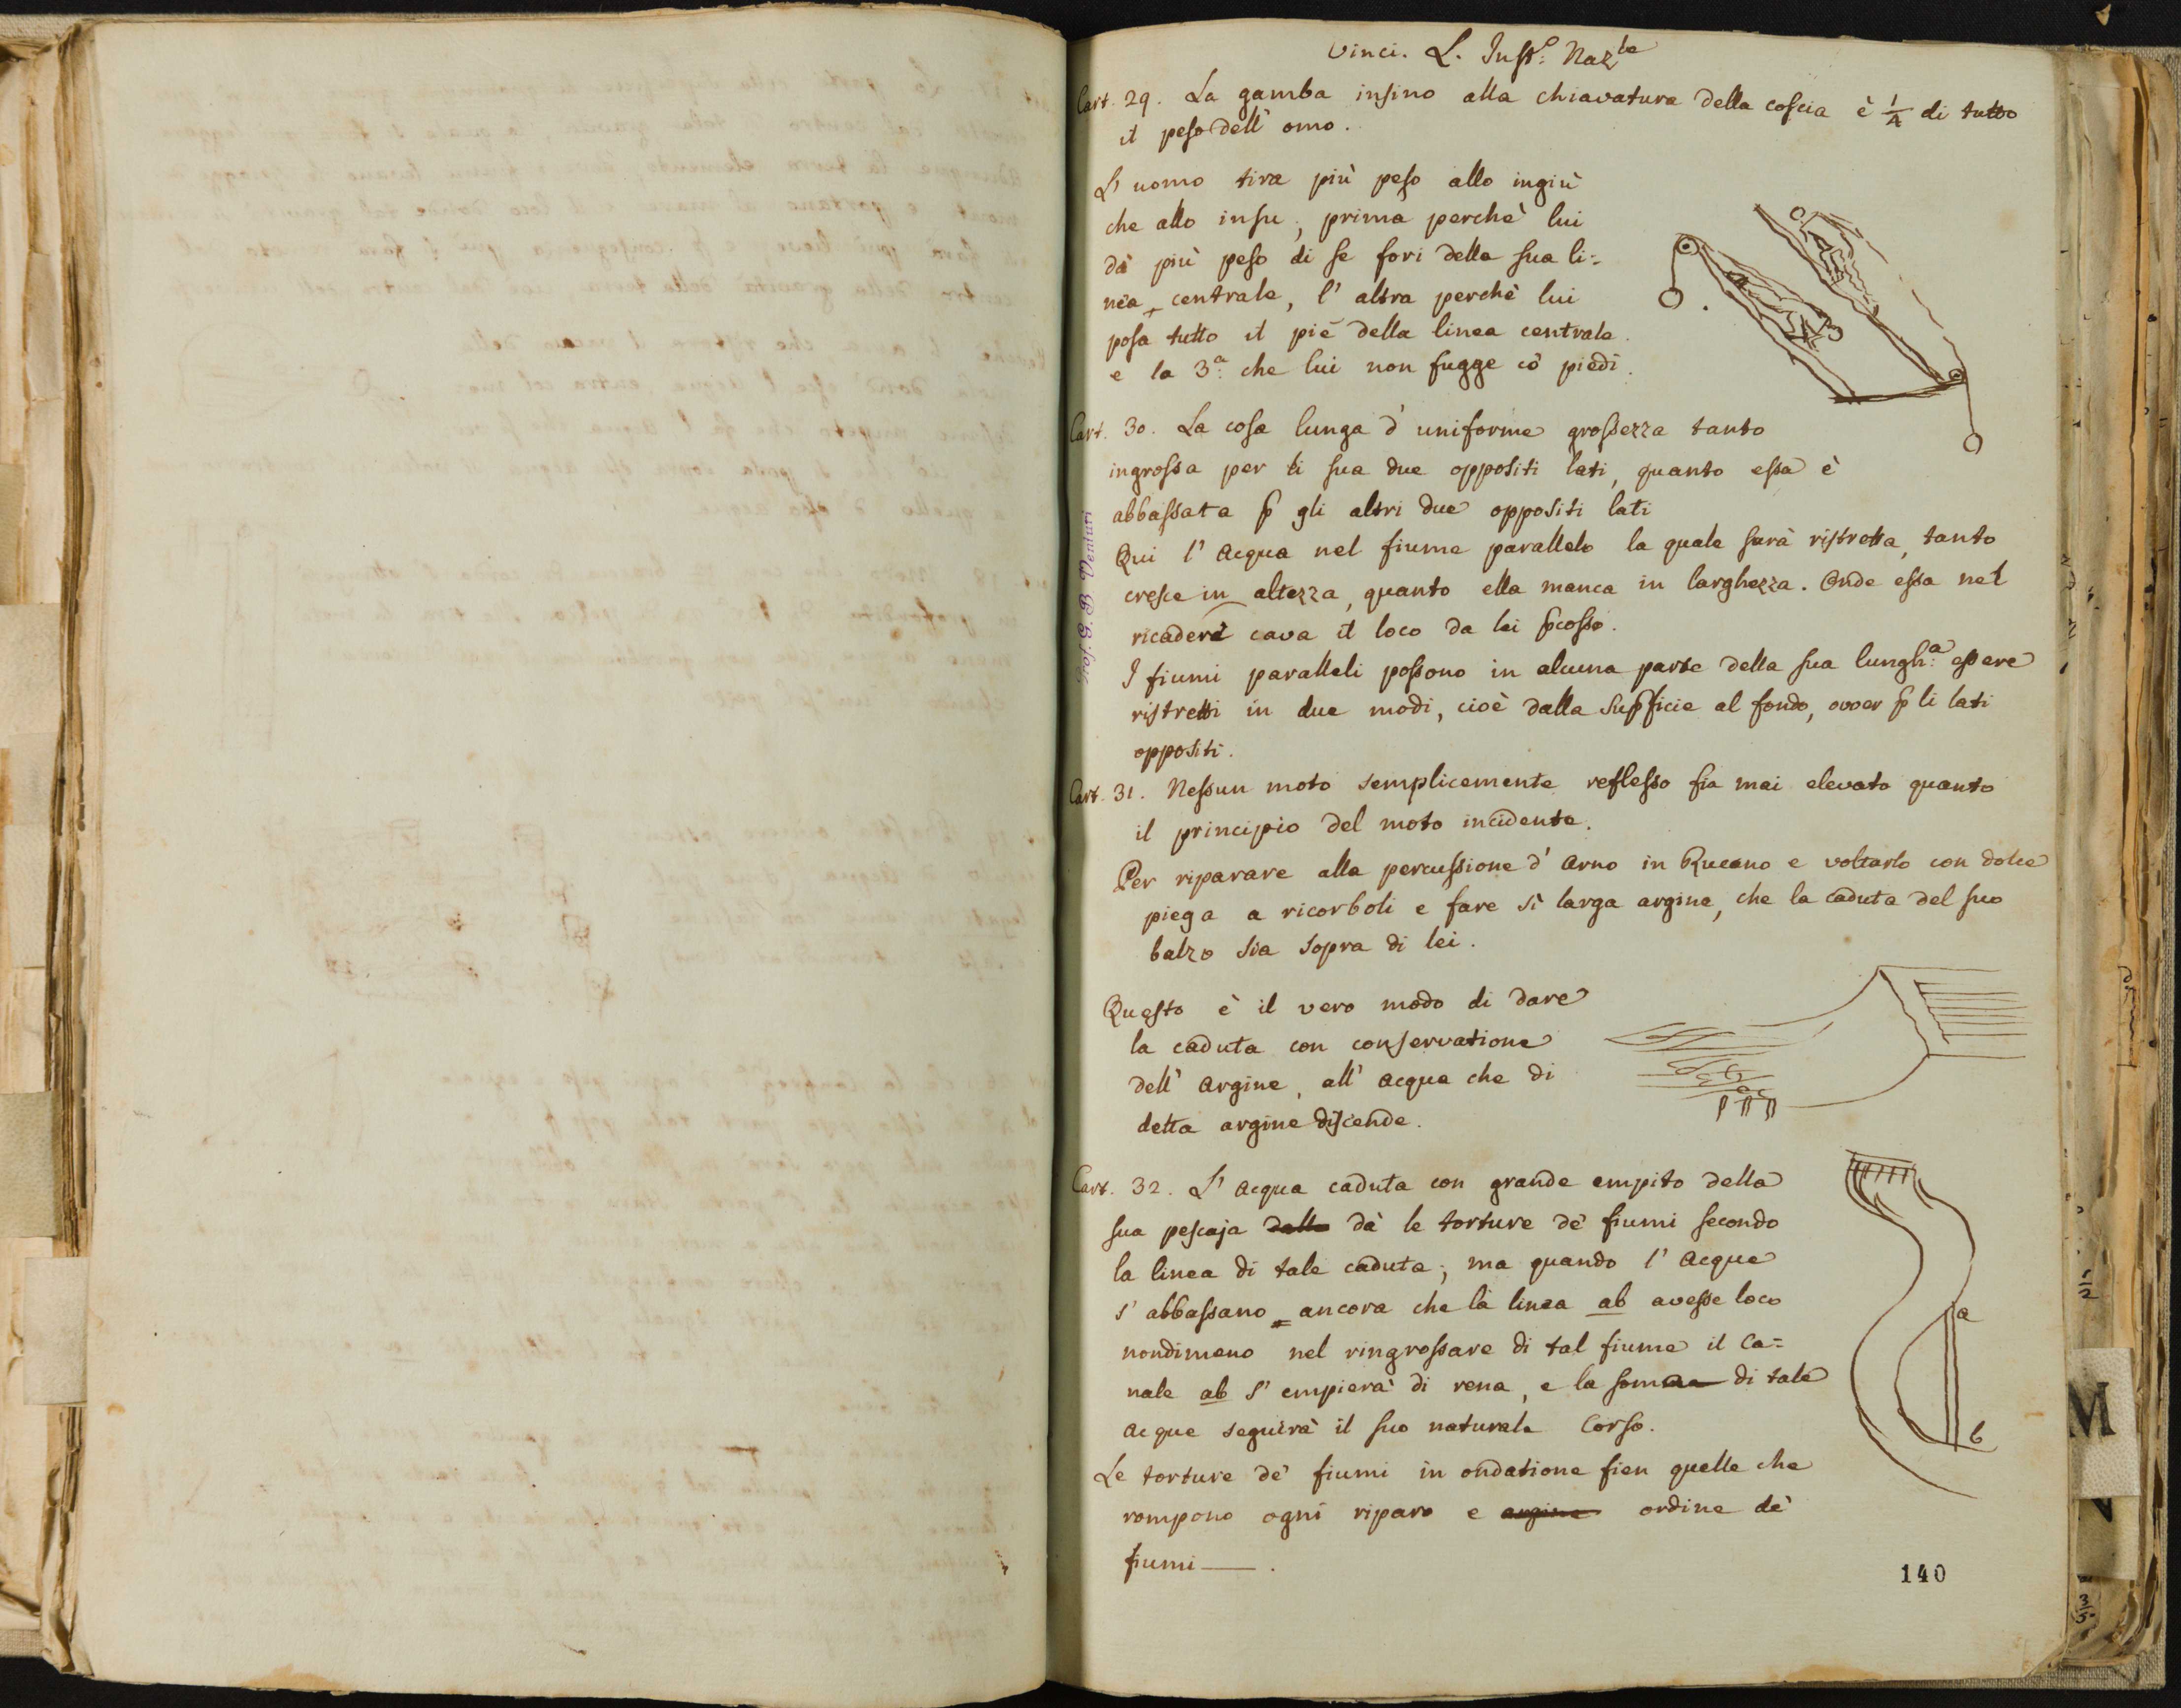 Vinci. L. Inst.o: Naz.le
Cart. 29. La gamba insino alla chiavatura della coscia è 1/4 di tutto
il peso dell' omo.
L' uomo tira più peso allo ingiù
che allo insu, prima perchè lui
dà più peso di se fori della sua li=
nea centrale, l' altra perchè lui
posa tutto il piè della linea centrale.
e la 3.a che lui non fugge cò piedi.
Cart. 30. La cosa lunga d' uniforme grossezza tanto
ingrossa per li sua due oppositi lati, quanto essa è
abbassata p gli altri due oppositi lati
Qui l' Acqua nel fiume parallelo la quale sarà ristretta, tanto
cresce in altezza, quanto ella manca in larghezza. Onde essa nel
ricadere cava il loco da lei pcosso.
I fiumi paralleli possono in alcuna parte della sua lungh:a essere
ristretti in due modi, cioè dalla supficie al fondo, over p li lati
oppositi.
Cart. 31. Nessun moto semplicemente reflesso fia mai elevato quanto
il principio del moto incidente.
Per riparare alla percussione d' Arno in Rucano e voltarlo con dolce
piega a ricorboli e fare sì larga argine, che la caduta del suo
balzo sia sopra di lei.
Questo è il vero modo di dare
la caduta con conservatione
dell' Argine, all' Acqua che di
detta argine discende.
Cart. 32. L' Acqua caduta con grande empito della
sua pescaja dalla dà le torture de' fiumi secondo
la linea di tale caduta; ma quando l' Acque
s' abbassano ancora che la linea ab avesse loco
nondimeno nel ringrossare di tal fiume il Ca=
nale ab s' empierà di rena, e la somma di tale
Acque seguirà il suo naturale Corso.
Le torture de' fiumi in ondatione fien quelle che
rompono ogni riparo e argine ordine de'
fiumi.
a
b
Prof. G. B. Venturi
140
1/2
M
3/5